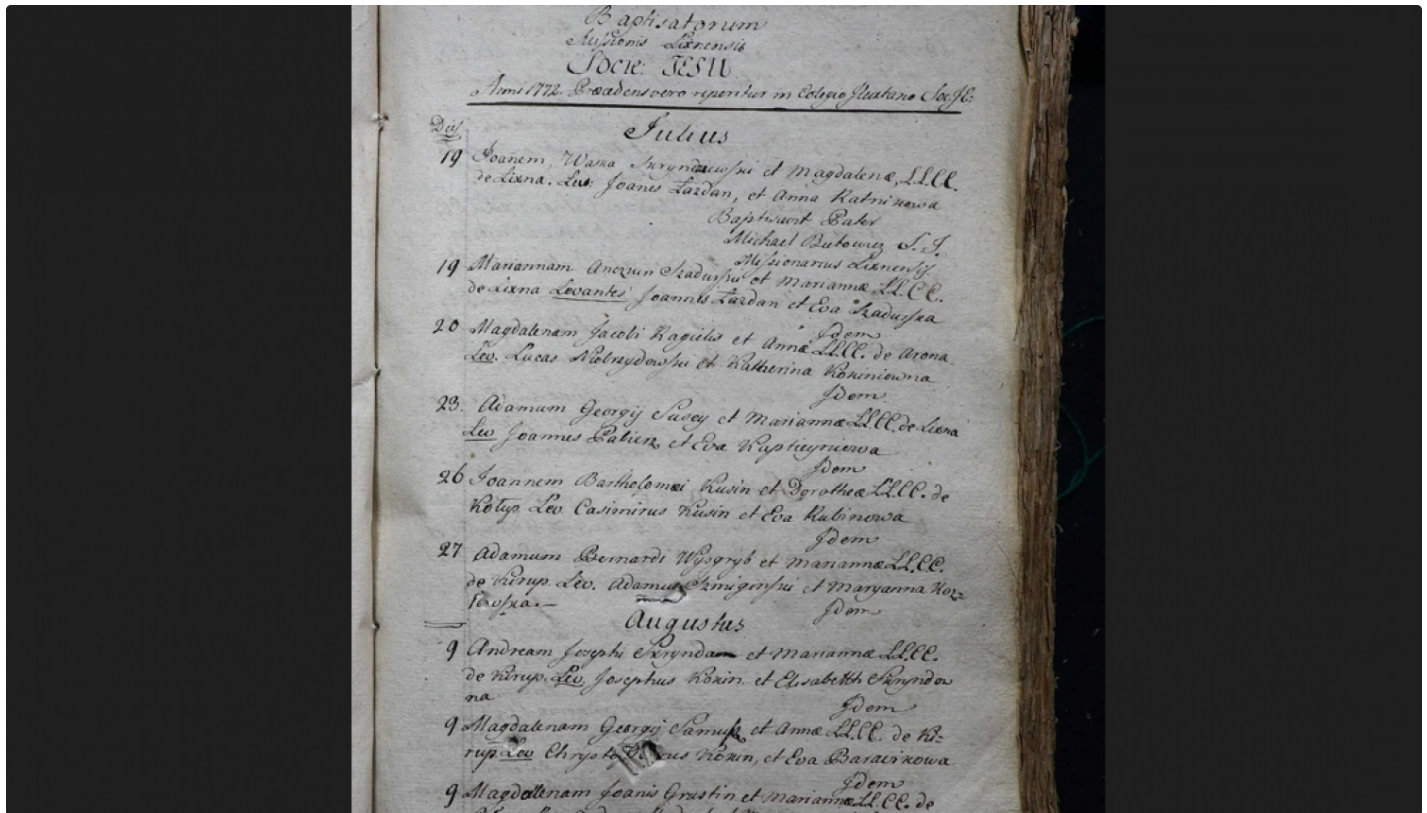 Baptisatorum
Missionis Lixnensis
Socie: JESU
Anni 1772. Præcedens vero reperitur in Colegio Soc: JE:
Dies
Julius
19 Joanem, Waska et Magdalenæ, LL.CC.
de Lixna. Lev: Joanes Lazdan, et Anna Ratnikowa
Baptisavit Pater
Michael Butowicz S. J.
Missionarius Lixnensis.
19 Mariannam Szadurski et Mariannæ LL.CC.
de Lixna Levantes Joannes Lazdan et Eva Szadurska
Idem
20 Magdalenam Jacobi Kagielis et Annæ LL.CC. de Arona
Lev. Lucas et Katherina Kokiniowna
Idem
23. Adamum Georgij Susey et Mariannæ LL.CC. de Lixna
Lev Joannes et Eva
Idem
26 Joannem Bartholomæi Kusin et Dorotheæ LL.CC. de
Kotup. Lev Casimirus Kusin et Eva Rubinowa
Idem
27 Adamum Bernardi Wysgryb et Mariannæ LL.CC.
de Kirup. Lev. Adamus et Maryanna
Idem
Augustus
9 Andream Josephi Skrynda et Mariannæ LL.CC.
de Kirup. Lev. Josephus Kokin et Elisabeth Skryndow
na
Idem
9 Magdalenam Georgij et Annæ LL.CC. de Ki-
rup. Lev Kokin, et Eva Baracikowa
Idem
9 Magdalenam Joanis Grustin et Mariannæ LL.CC. de